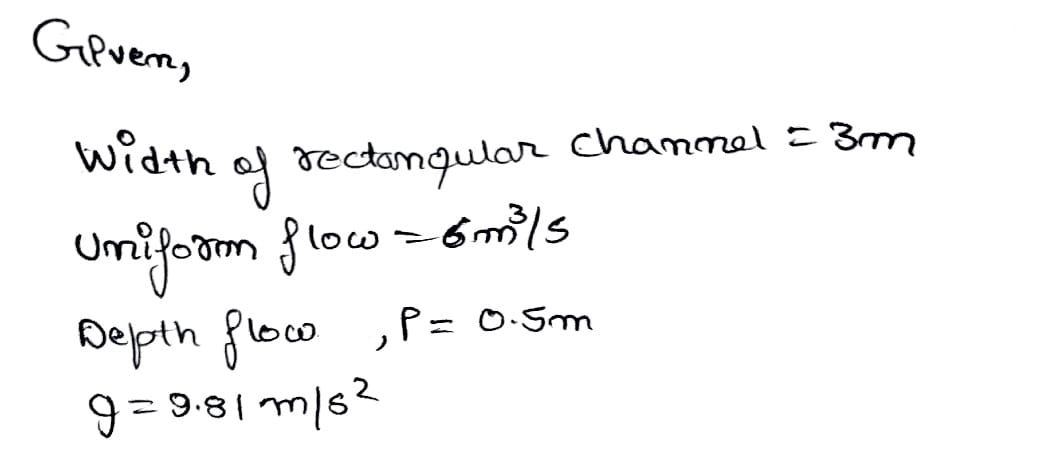 Given,
Width of rectangular channel = 3m
Uniform flow = 6m³/s
Depth flow , P = 0.5m
g = 9.81 m/s²